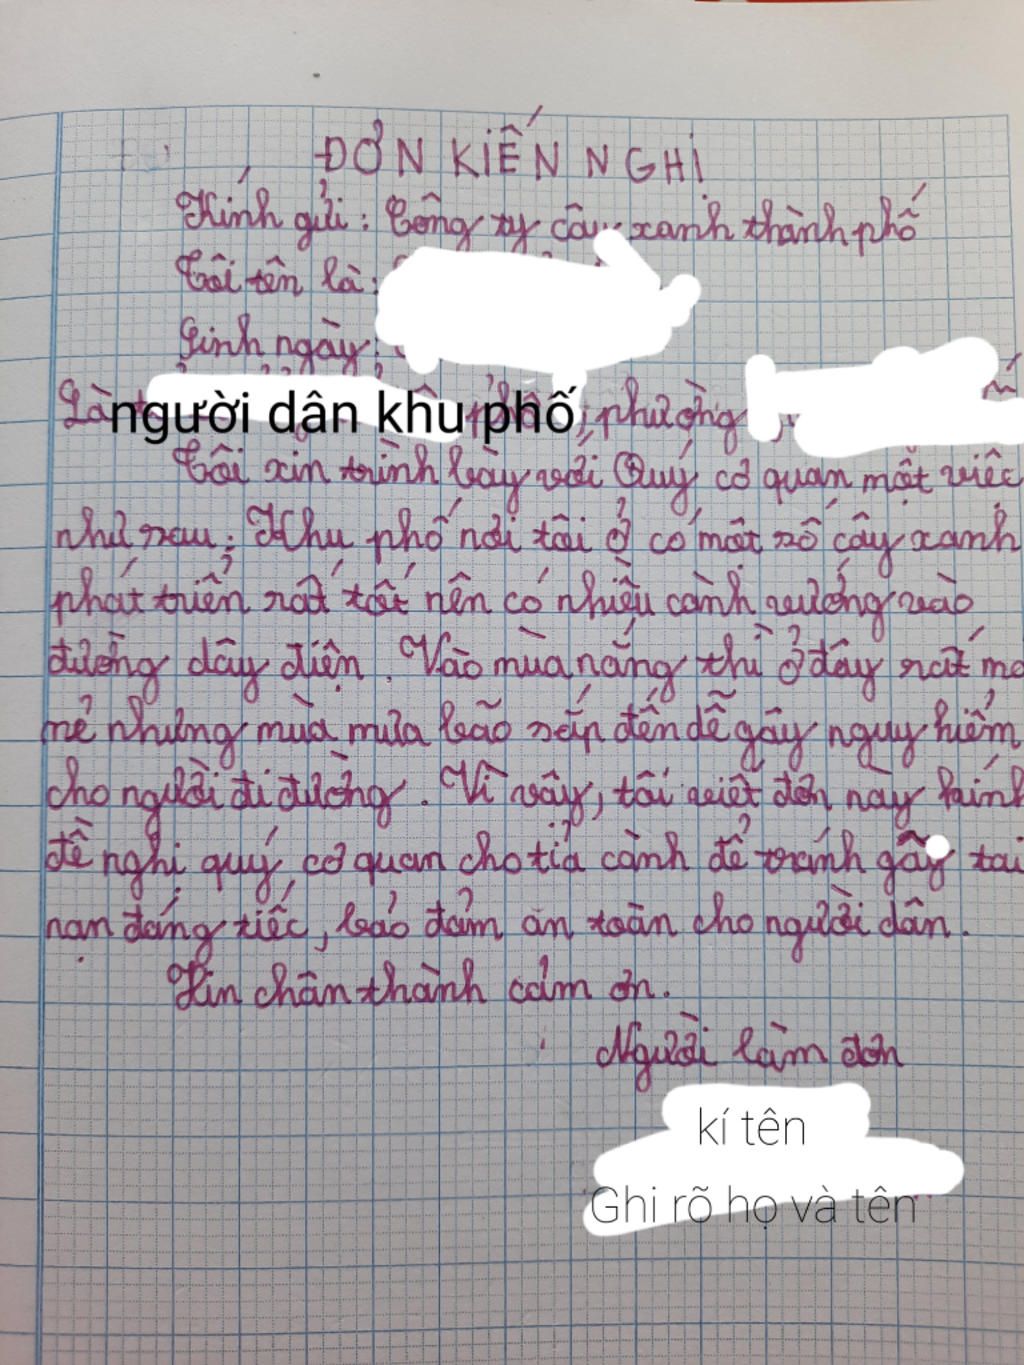 ĐƠN KIẾN NGHỊ
Kính gửi: Công ty cây xanh thành phố
Tôi tên là:
Sinh ngày:
Là người dân khu phố, phường
Tôi xin trình bày với Quý cơ quan một việc
như sau: Khu phố nơi tôi ở có một số cây xanh
phát triển rất tốt nên có nhiều cành vướng vào
đường dây điện. Vào mùa nắng thì ở đây rất má
mẻ nhưng mùa mưa bão sắp đến dễ gây nguy hiểm
cho người đi đường. Vì vậy, tôi viết đơn này kính
đề nghị quý cơ quan cho tỉa cành để tránh gây tai
nạn đáng tiếc, bảo đảm an toàn cho người dân.
Xin chân thành cảm ơn.
Người làm đơn
kí tên
Ghi rõ họ và tên